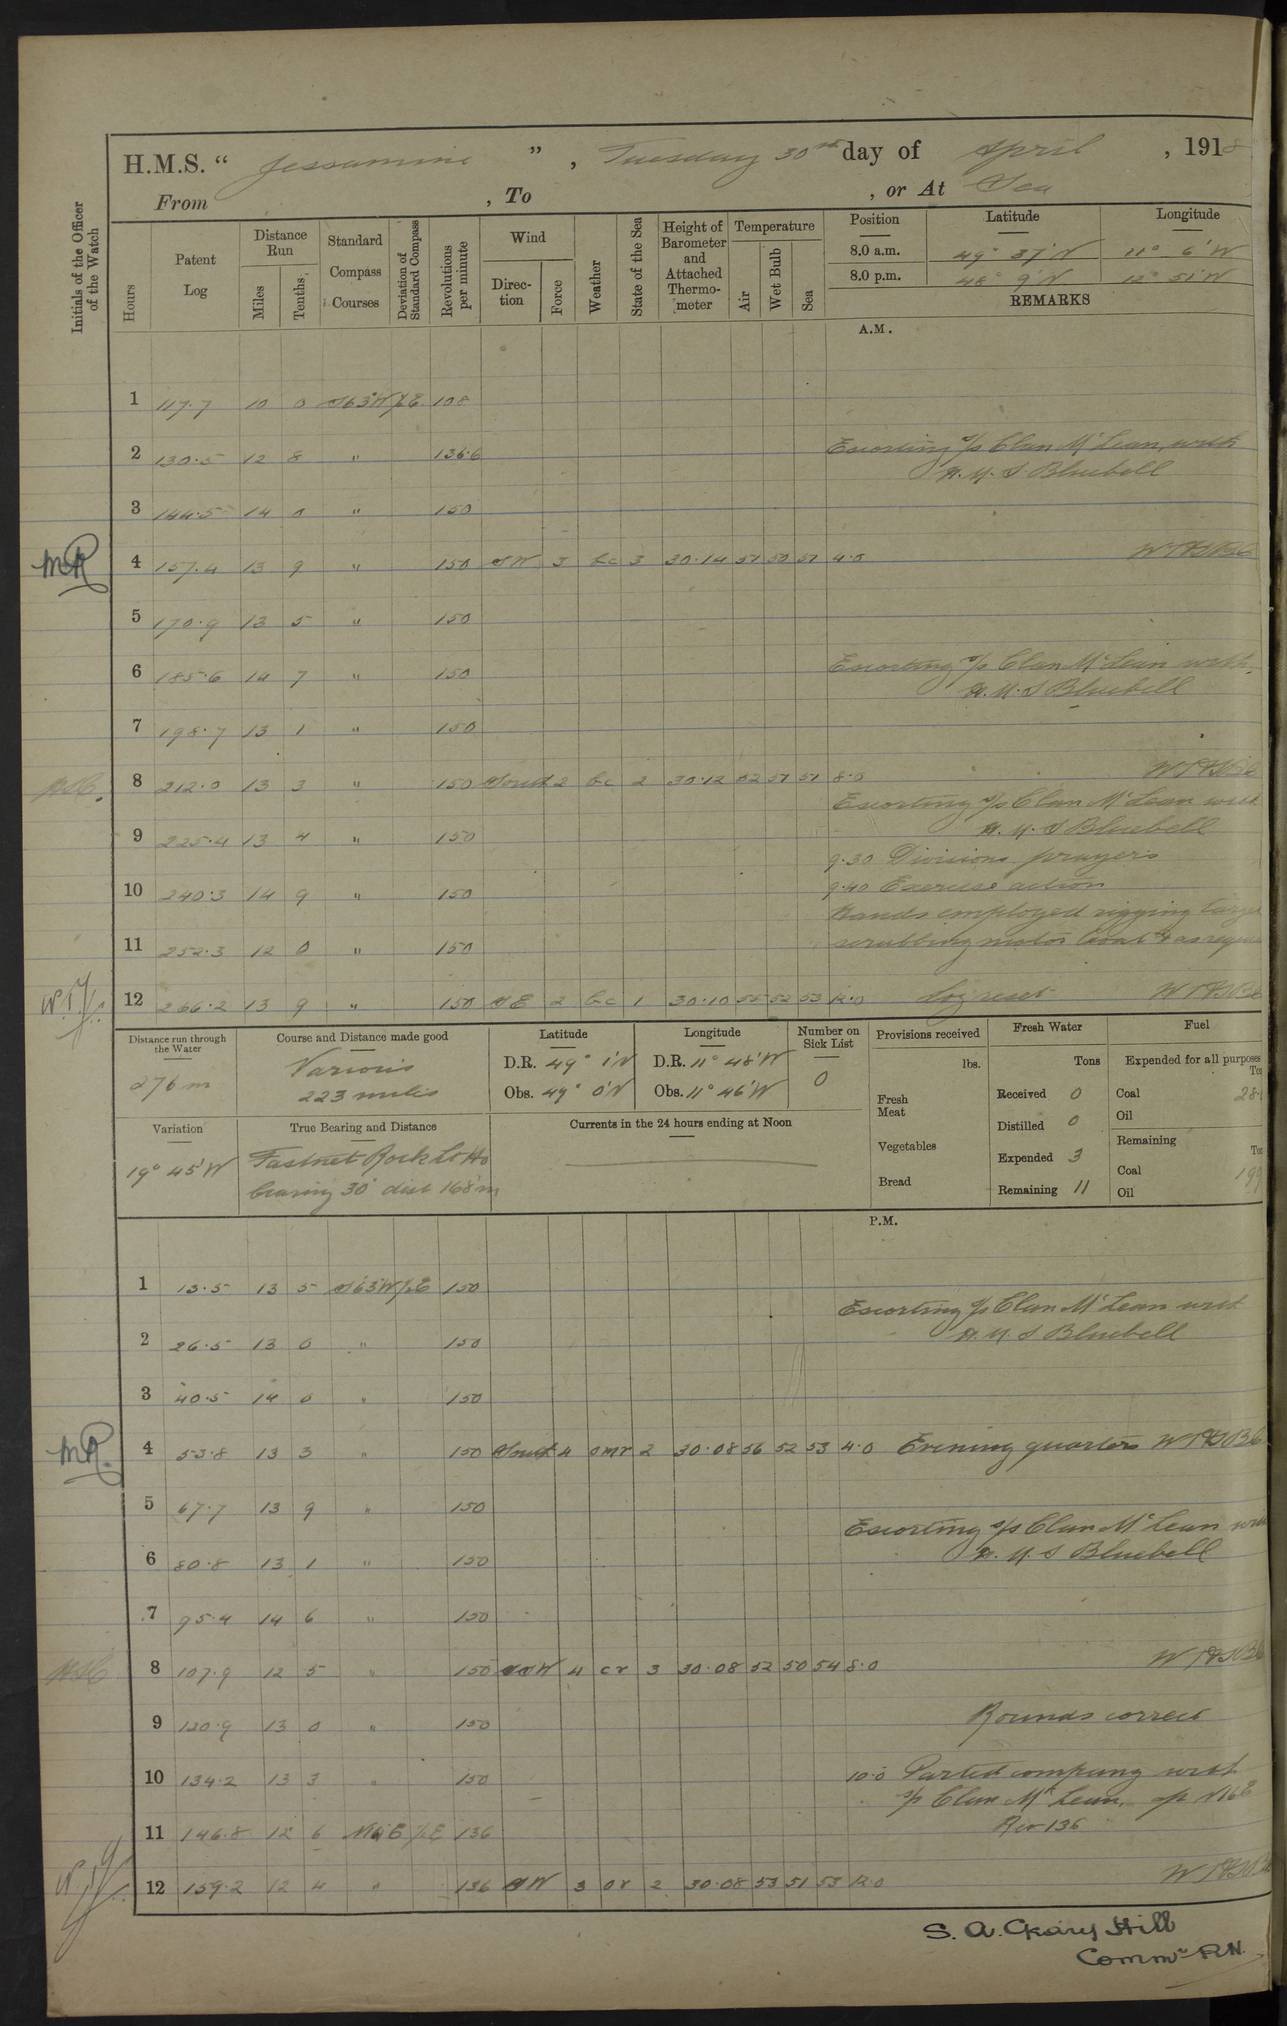 H.M.S. “ Jessamine ” , Tuesday 30th day of April , 1918
From , To , or At Sea
Initials of the Officer of the Watch
Hours
Patent Log
Distance Run
Miles
Tenths
Standard Compass Courses
Deviation of Standard Compass
Revolutions per minute
Wind
Direction
Force
Weather
State of the Sea
Height of Barometer and Attached Thermometer
Temperature
Air
Wet Bulb
Sea
Position Latitude Longitude
8.0 a.m. 49° 37' N 11° 6' W
8.0 p.m. 48° 9' N 12° 51' W
REMARKS
A.M.
1 117.7 10 0 S63°W 108
2 130.5 12 8 " 136.6 Escorting s/s Clan McLean with
H.M.S Bluebell
3 144.5 14 0 " 150
4 157.4 13 9 " 150 SW 3 bc 3 30.14 51 50 51 4.0
5 170.9 13 5 " 150
6 185.6 14 7 " 150 Escorting s/s Clan McLean with
H.M.S Bluebell
7 198.7 13 1 " 150
8 212.0 13 3 " 150 South 2 bc 2 30.12 52 51 51 8.0
Escorting s/s Clan McLean with
H.M.S Bluebell
9 225.4 13 4 " 150
9.30 Divisions prayers
10 240.3 14 9 " 150 9.40 Exercise action
Hands employed rigging target
11 252.3 12 0 " 150 scrubbing motor boat & as requ
12 266.2 13 9 " 150 SE 2 bc 1 30.10 55 52 53 12.0 Log reset
Distance run through the Water
276 m
Course and Distance made good
Various
223 miles
Latitude
D.R. 49° 1' N
Obs. 49° 0' N
Longitude
D.R. 11° 48' W
Obs. 11° 46' W
Number on Sick List
0
Provisions received
lbs.
Fresh Meat
Vegetables
Bread
Fresh Water
Tons
Received 0
Distilled 0
Expended 3
Remaining 11
Fuel
Expended for all purposes
Coal 28
Oil
Remaining
Coal 199
Oil
Variation
19° 45' W
True Bearing and Distance
Fastnet Rock Lt Ho
bearing 30° dist 168 m
Currents in the 24 hours ending at Noon
P.M.
1 13.5 13 5 S63°W 150
Escorting s/s Clan McLean with
2 26.5 13 0 " 150 H.M.S Bluebell
3 40.5 14 0 " 150
4 53.8 13 3 " 150 South 4 omr 2 30.08 56 52 53 4.0 Evening quarters
5 67.7 13 9 " 150
Escorting s/s Clan McLean with
6 80.8 13 1 " 150 H.M.S Bluebell
7 95.4 14 6 " 150
8 107.9 12 5 " 150 4 cr 3 30.08 52 50 54 8.0
9 120.9 13 0 " 150 Rounds correct
10 134.2 13 3 " 150 10.0 Parted company with
s/s Clan McLean,
11 146.8 12 6 136 Rev 136
12 159.2 12 4 " 136 SW 3 or 2 30.08 53 51 53 12.0
S. A. Geary Hill
Commr R.N.